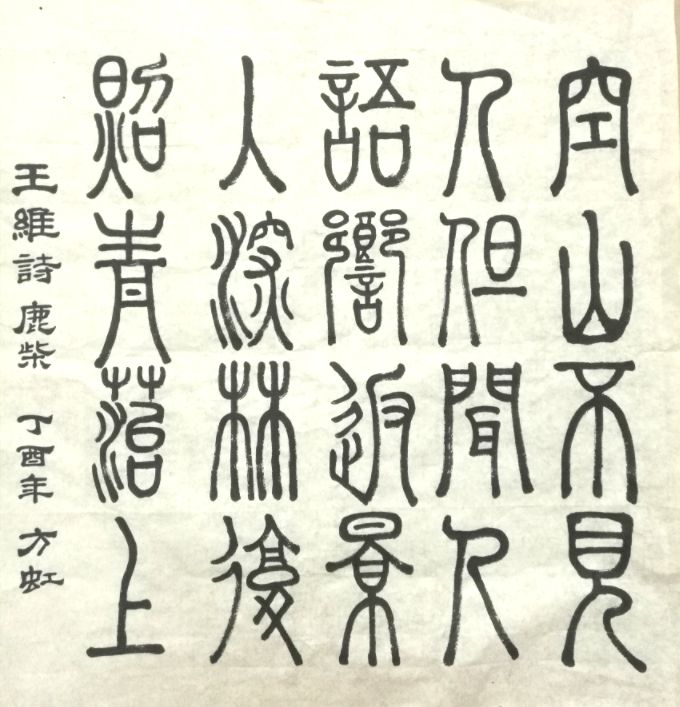 空山不見
人但聞人
語響返景
入深林復
照青菭上
王維詩 鹿柴 丁酉年 方虹